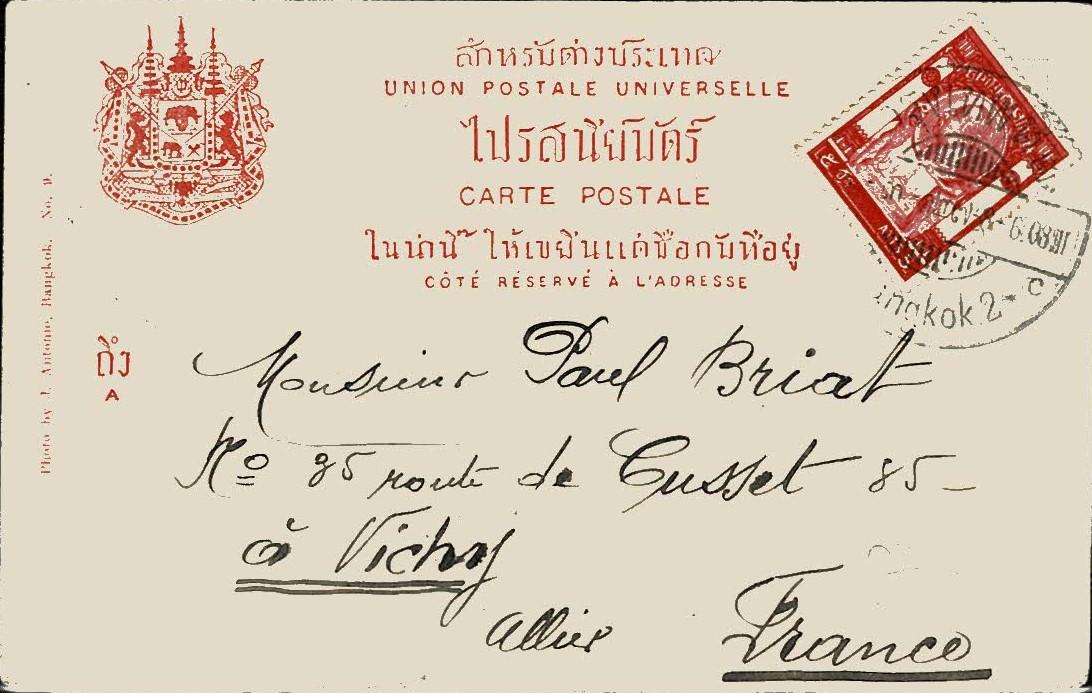 สำหรับต่างประเทศ
UNION POSTALE UNIVERSELLE
ไปรสนียบัตร์
CARTE POSTALE
ในน่านี้ ให้เขยีนแค่ชื่อกับที่อยู่
CÔTÉ RÉSERVÉ À L'ADRESSE
Photo by J. Antonio, Bangkok. No.
ถึง
A
Monsieur Paul Briat
No 85 route de Cusset 85
à Vichy
Allier France
ngkok 2